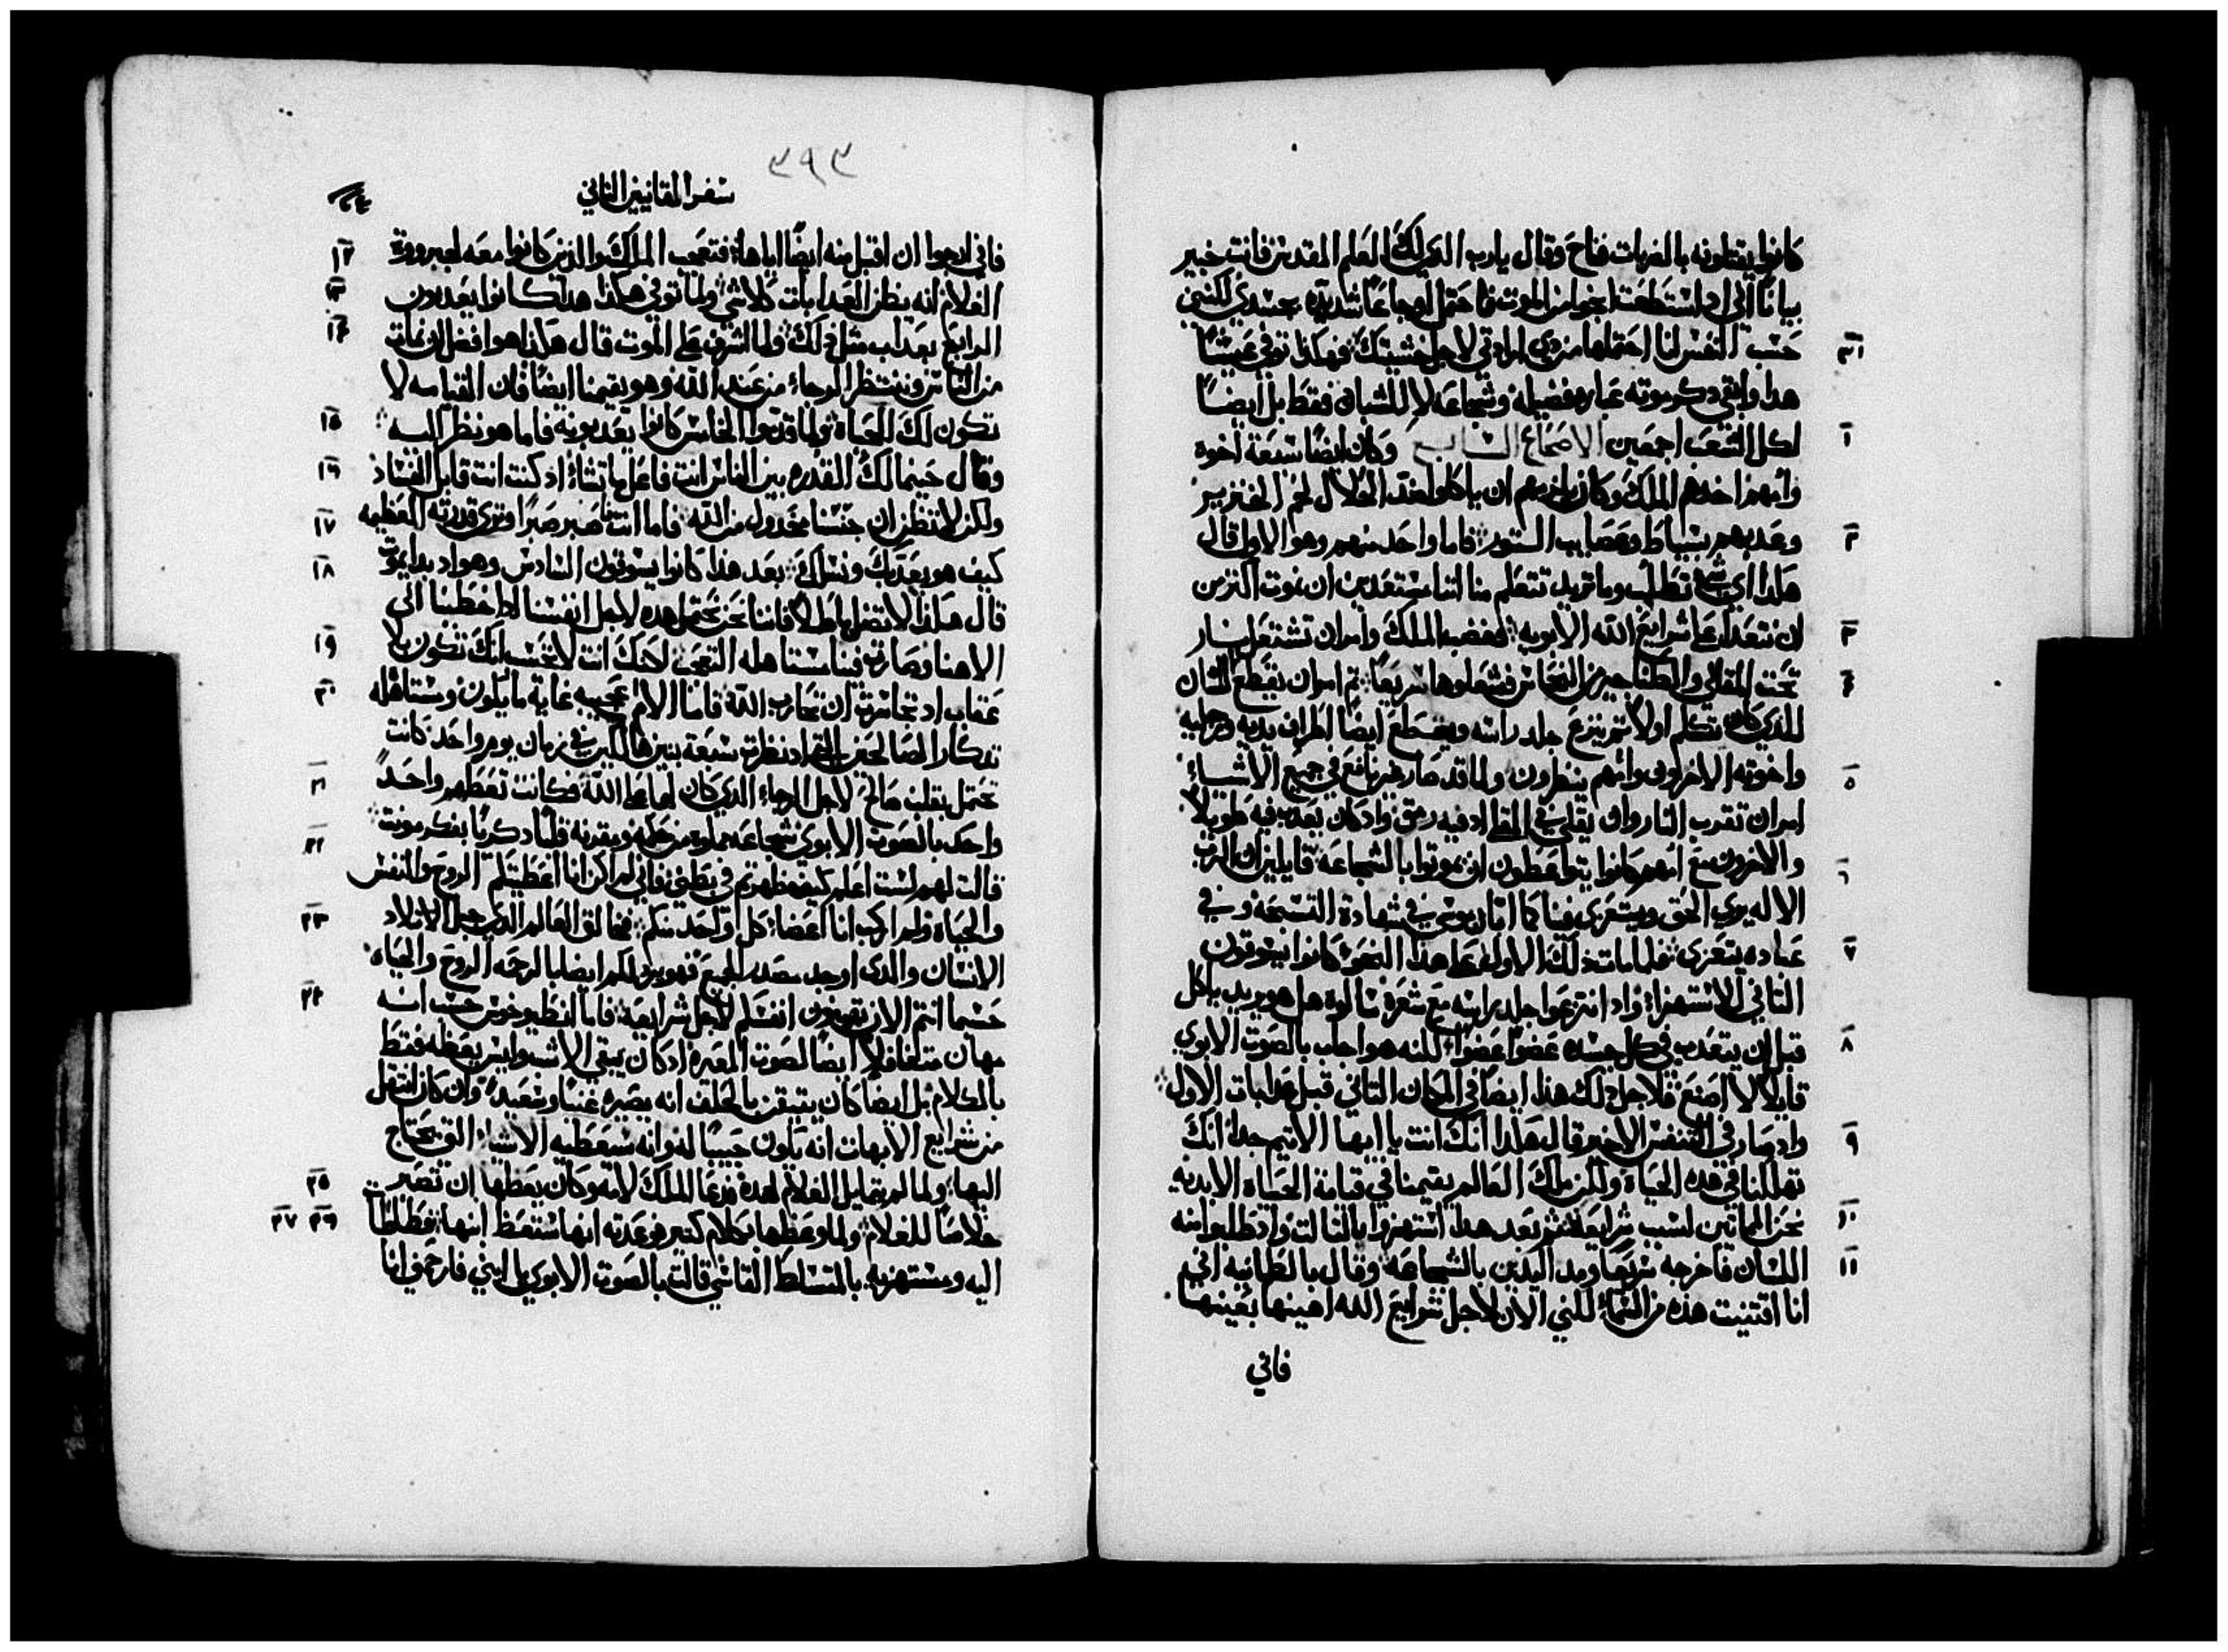 كانوا يقتلونه بالضربات فناح وقال يارب الدي لك العلم المقدس فانت خبير
بيانًا اني اد استطعت انجوا من الموت فاحتمل اوجاعًا شديده بجسدي لكنني
٣١ حسب النفس انا احتملها من دي ارادتي لاجل خشيتك فهكذا توفي عيشتًا
هذا وابقي دكر موته عباره فضيله وشجاعه لا للشبان فقط بل ايضًا
١ لكل الشعب اجمعين الاصحاح السابع وكان ايضًا سبعة اخوه
وامهم اخدهم الملك وكان يلزمهم ان ياكلوا ضد الحلال لحم الخنزير
٢ وعدبهم بسياط وعصايب التنور فاما واحد منهم وهو الاول قال
هكدا اي شي تطلب وما تريد تتعلم منا اننا مستعدين ان نموت اكثر من
٣ ان نتعدا علي شرايع الله الابويه فغضب الملك وامر ان تشتعل بنار
٤ تحت المقالي والطناجير من النحاس فشعلوها سريعًا ثم امر ان يقطع لسان
الدي كان تكلم اولًا ثم ينزع جلد راسه ويقطع ايضًا اطراف يديه ورجليه
٥ واخوته الاخرون وامهم ينظرون ولما قد صار غير نافع في جميع الاشياء
امر ان تقرب النار وان يقلي في المقلا اد فيه رمق واد كان يعدب فيه طويلًا
٦ والاخرون مع امهم كانوا يتواعظون ان يموتوا بالشجاعه قايلين ان الرب
الاله يري الحق ويتعزي فينا كما انار موسي في شهادة التسبحه وفي
٧ عباده يتعزي فلما مات دلك الاول علي هذا النحو كانوا يسوقون
التاني للاستهزاء واد انتزعوا جلد راسه مع شعره سالوه هل هو يريد ياكل
٨ قبل ان يتعدب في كل جسده عضوًا عضوًا لكنه هو اجاب بالصوت الابوي
قايلًا لا اصنع فلاجل دلك هذا ايضًا في المكان التاني قبل عدابات الاول
٩ واد صار في التنفس الاخير قال هكدا انك انت يا ايها الاتيم جدًا انك
تهلكنا في هده الحياة ولكن ملك العالم يقيمنا في قيامة الحياة الابديه
١٠ نحن الماتين لسبب شرايعه ثم بعد هدا استهزوا بالتالت واد طلبوا منه
١١ اللسان فاخرجه سريعًا ومد اليدين بالشجاعه وقال بالطمانيه انني
انا اقتنيت هذه من السماء لكنني الان لاجل شرايع الله اهينها بعينها
فاني
٣٩٣
سفر المقابيين التاني
فاني ارجوا ان اقتبل منه ايضًا اياها فتعجب الملك والذين كانوا معه لجبروة ١٢
الغلام انه يظن العدابات كلاشي ولما توفي هكذا هدا كانوا يعدبون ١٣
الرابع بعداب مثل دلك ولما اشرف علي الموت قال هكذا هوا فضل ان نمات ١٤
من الناس وننتظر الرجاء من عند الله وهو يقيمنا ايضًا فان القيامه لا
تكون لك للحياة ولما قدموا الخامس كانوا يعدبونه فاما هو نظر اليه ١٥
وقال حينما لك القدره بين الناس انت فاعل ما تشاء اد كنت انت قابل الفساد ١٦
ولكن لا تظن ان جنسنا مخدول من الله فاما انت صبر صبرًا وتري قدرته العظيمه ١٧
كيف هو يعدبك ونسلك بعد هذا كانوا يسوقون السادس وهو اد بدا يموت ١٨
قال هكذا لا تضل باطلًا فاننا نحن نحتمل هده لاجل انفسنا اد اخطينا الي
الاهنا وصارت فينا مستاهله التعجب لكنك انت لا تحسب انك تكون بلا ١٩
عقاب اد تجاسرت ان تحارب الله فاما الام عجيبه غاية ما يكون ومستاهله ٢٠
تدكار الصالحين التي اد نظرت سبعة بنيها هالكين في زمان يوم واحد كانت
تحتمل بقلب صالح لاجل الرجاء الدي كان لها علي الله فكانت تعظهم واحدًا ٢١
واحد بالصوت الابوي شجاعه مملوه من حكمه ومقرنه فكرًا دكريًا بفكر مونت
قالت لهم لست اعلم كيف ظهرتم في بطني فاني لم اكن انا اعطيتكم الروح والنفس ٢٢
والحياة ولم اركب انا اعضاء كل واحد منكم فخالق العالم الدي جبل الاتلاد ٢٣
الانسان والدي اوجد مصدر الجميع فهو يرد لكم ايضا بالرحمه الروح والحياه
حسبما انتم الان تهينون انفسكم لاجل شرايعه فاما انطيوخوس حسب انه ٢٤
مهان متغافلًا ايضًا لصوت المعيره اد كان يبقي الاشب وليس يعظه فقط
بالكلام بل ايضا كان يتيقن بالحلف انه يصيره غنيًا وسعيدًا وان كان انتقل
من شرايع الابهات انه يكون حبيبًا له وانه سيعطيه الاشياء التي يحتاج
اليها ولما لم يتمايل الغلام لهده فدعا الملك لامه وكان يعظها ان تصير ٢٥
خلاصًا للغلام ولما وعظها بكلام كتير فوعدته انها ستعظ ابنها فطاطات ٢٦ ٢٧
اليه ومستهزيه بالمتسلط القاسي قالت بالصوت الابوي يا ابني فارحمني انا